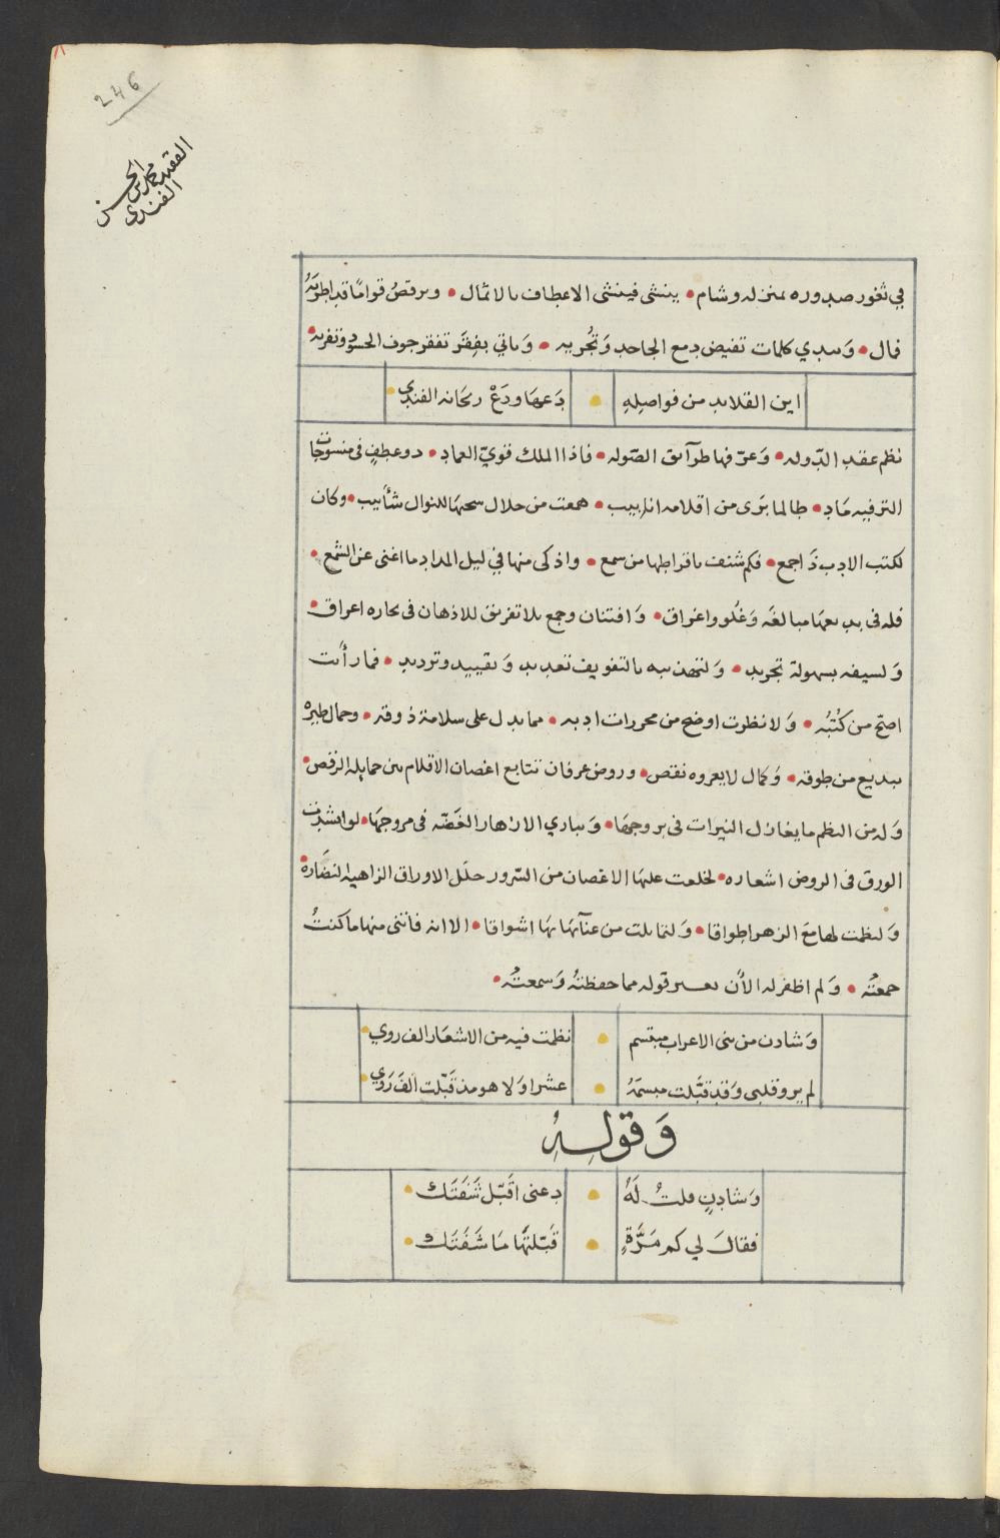 246
الفقيه محمد بن الحسن
الفندي
في ثغور صدوره بمنزله وشام • ينشي فينثني الاعطاف بالامثال • ويرقص قواما قد اطربَته
فمال • وَيبدي كلمات تفيض دمع الجاحد وَتجُريه • وَياتي بفِقَر تفقر جوف الحسود وتفريه •
اين القلايد من فواصلِهِ • دَعهَا ودَعْ ريحَانه الفندي •
نظم عقد الدّوله • وَعرّفها طرآيق الصّوله • فاذا الملك قويّ العماد • ذو عطفٍ في منسوجات
الترفيه مَاد • طالما بَرى من اقلامه انابيب • همعت من خلال سحبهَا للنوال شأبيب • وكان
لكتب الادب ذَا جمع • فكم شنف باقراطها من سمع • واذكى منها في ليل المداد ما اغنى عن الشمع •
فله في بديعهَا مبالغَه وَغُلو واغراق • وَافتنان وجمع بلا تفريق للاذهان في بحاره اعراق •
وَلسيفه بسهولة تجريد • وَلتهذيبه بالتفويف تعديد وَتقييد وترديد • فما رأيت
اصَحّ من كُتبُه • وَلا نظرت اوضح من محررات ادبه • مما يدل على سلامة ذوقه • وجمال طيره
ببديع من طوقه • وَكمال لا يعروه نقص • وروض عرفان تتابع اغصان الاقلام من حمايله الرقص •
وَله من النظم ما يغازل النيرات في بروجهَا • وَيباري الازهار الغَضّه في مروجهَا • لو انشدت
الورق في الروض اشعاره • لخلعت عليهَا الاغصان من السّرور حلَل الاوراق الزاهيه النضَاره •
وَلنظمت لها مَعَ الزهر اطواقا • وَلتمايلت من غنآئهَا بهَا اشواقا • الا انه فاتني منها ما كنتُ
جمعتُه • وَلم اظفر له الأن بغير قوله مما حفظتهُ وَسمعتُه •
وَشادن من بني الاعراب مبتسم • نظمت فيه من الاشعَار الف روي •
لم يرو قلبي وَقد قبَّلت مبسمَهُ • عشرا وَلا هو مذ قَبّلت الفَ رَوي •
وَقولهُ
وَشادِنٍ قلتُ لَهُ • دعني اقَبّل شَفَتَك •
فقالَ لي كم مَرَّةٍ • قَبّلتَهَا مَا شَفَتَك •